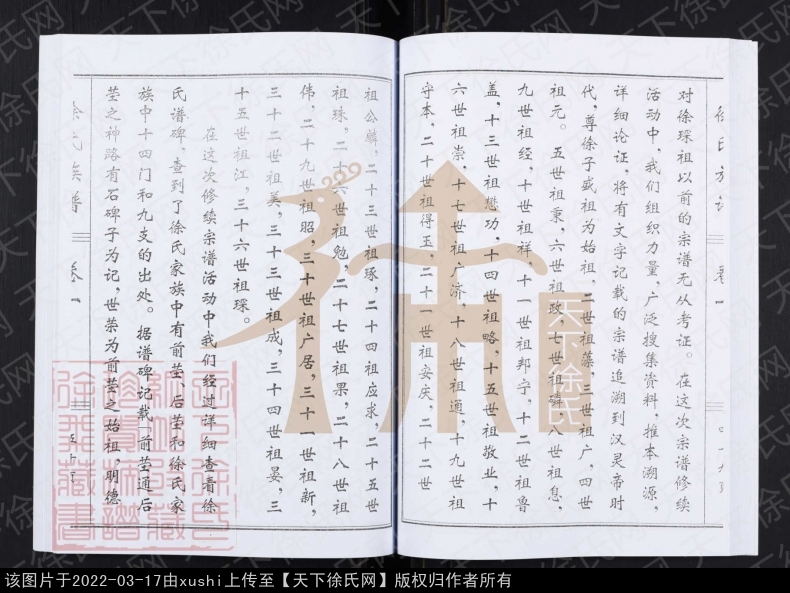 对徐琛祖以前的宗谱无从考证。在这次宗谱修续
活动中,我们组织力量,广泛搜集资料,推本溯源,
详细论证,将有文字记载的宗谱追溯到汉灵帝时
代,尊徐子盛祖为始祖,二世祖藻,三世祖广,四世
祖元。五世祖秉,六世祖政,七世祖碛,八世祖息,
九世祖经,十世祖祥,十一世祖邦宁,十二世祖鲁
盖,十三世祖懋功,十四世祖略,十五世祖敬业,十
六世祖崇,十七世祖广济,十八世祖通,十九世祖
守本,二十世祖得玉,二十一世祖安庆,二十二世
祖公麟,二十三世祖琢,二十四祖应求,二十五世
祖珠,二十六世祖勉,二十七世祖果,二十八世祖
伟,二十九世祖昭,三十世祖广居,三十一世祖新,
三十二世祖美,三十三世祖成,三十四世祖晏,三
十五世祖江,三十六世祖琛。
在这次修续宗谱活动中我们经过详细查看徐
氏谱碑,查到了徐氏家族中有前茔、后茔和徐氏家
族中十四门和九支的出处。据谱碑记载“前茔通后
茔之神路有石碑子为记,世荣为前茔之始祖,明德
徐氏族谱 卷一
天下徐氏
该图片于2022-03-17由xushi上传至【天下徐氏网】版权归作者所有